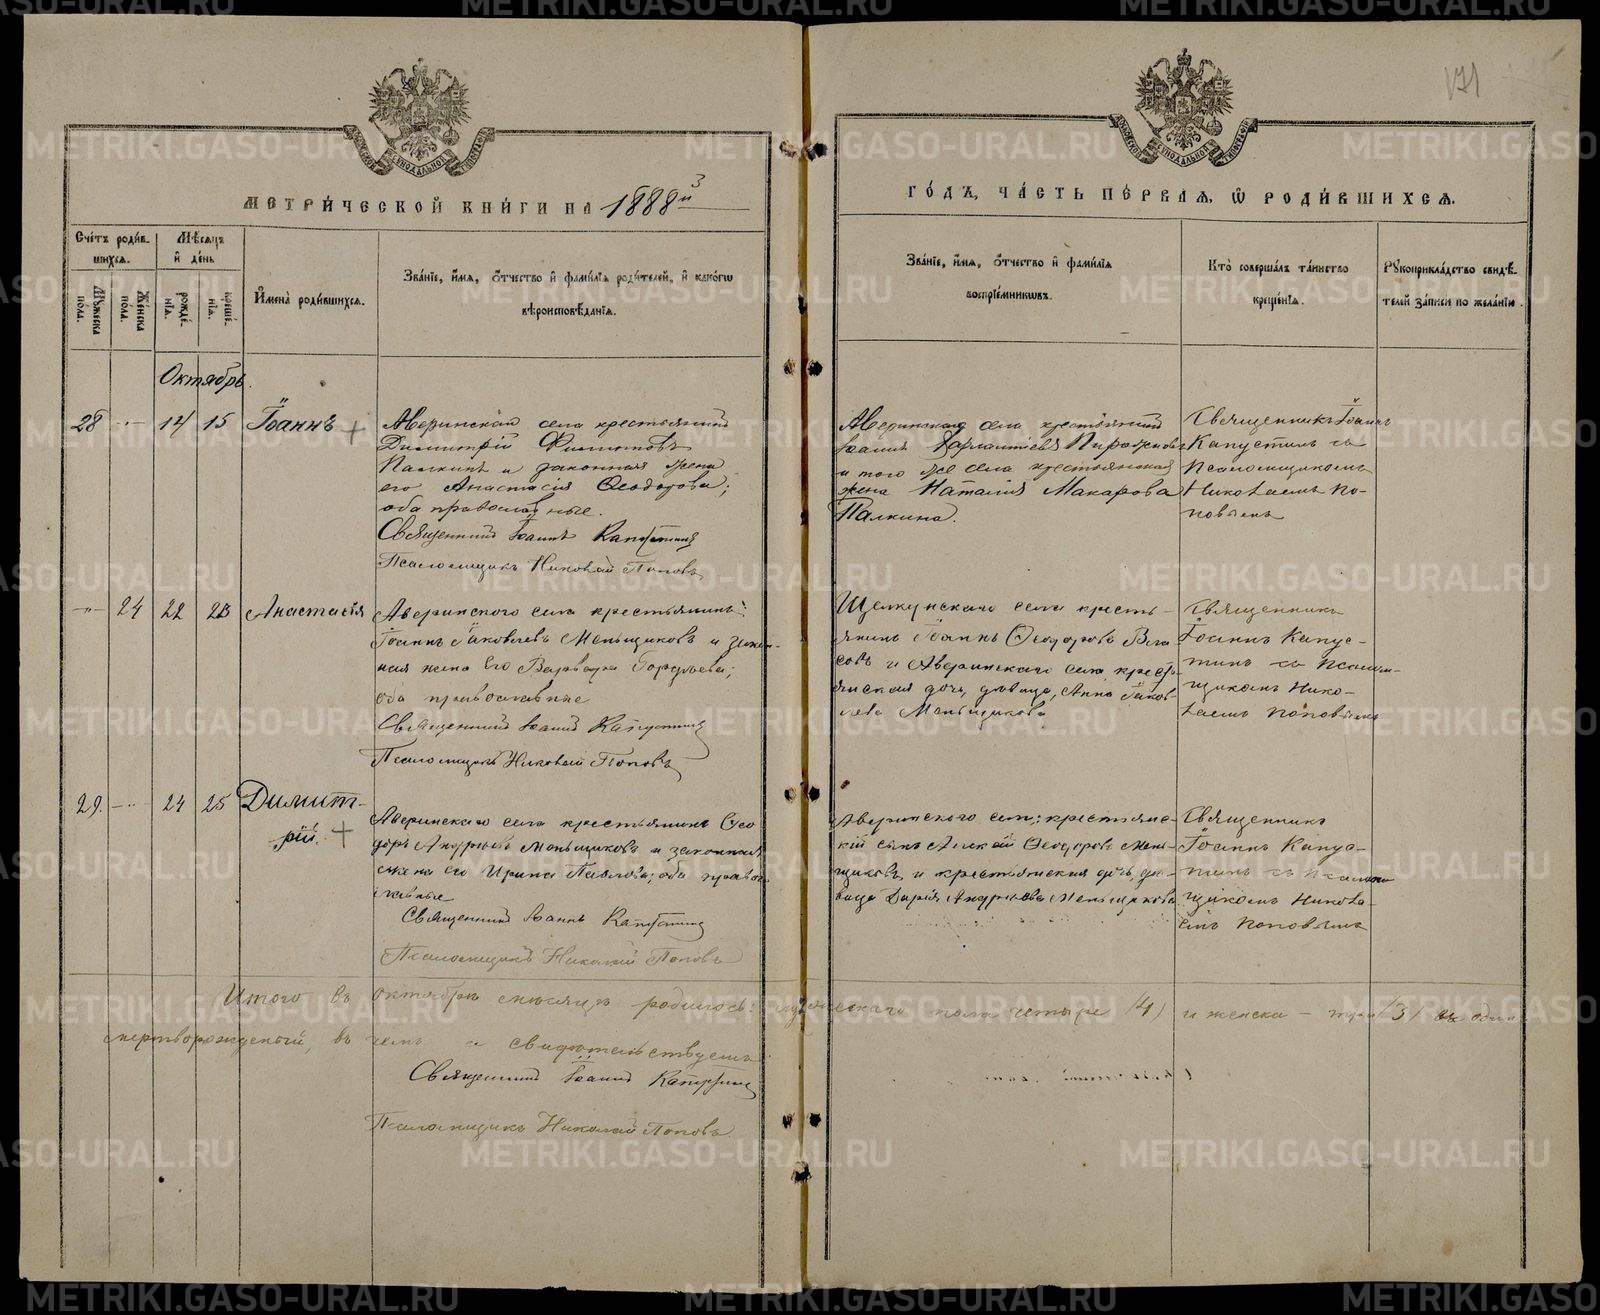 171
МЕТРИ́ЧЕСКОЙ КНИ́ГИ НА 1888й
ГО́ДЪ, ЧА́СТЬ ПЕ́РВАЯ, Ѿ РОДИ́ВШИХСЯ.
Сче́тъ роди́вшихся.
Мꙋ́жеска пола.
Же́нска по́ла.
Мѣ́сяцъ и҆ де́нь
рожде́нїя.
креще́нїя.
И҆мена̀ роди́вшихся.
Зва́нїе, и҆́мя, ѻ҆́тчество и҆ фами́лїя роди́телей, и҆ како́гѡ
вѣроисповѣ́данїя.
Зва́нїе, и҆́мя, ѻ҆́тчество и҆ фами́лїя
воспрїе́мникѡвъ.
Кто̀ соверша́лъ та́инство
креще́нїя.
Рꙋкоприкла́дство свидѣ́телей за́писи по жела́нїю.
Октябрь.
28 14 15 Іоаннъ
Аверинскаго села крестьянинъ
Димитрій Филиповъ
Палкинъ и законная жена
его Анастасія Ѳеодотова;
оба православные.
Священникъ Іоаннъ Капустинъ
Псаломщикъ Николай Поповъ
Аверинскаго села крестьянинъ
Іоаннъ
и того же села крестьянская
жена Наталія Макарова
Палкина.
Священникъ Іоаннъ
Капустинъ съ
Псаломщикомъ
Николаемъ По-
повымъ
24 22 23 Анастасія
Аверинского села крестьянинъ
Іоаннъ Іаковлевъ Меньщиковъ и закон-
ная жена его Варвара
оба православные
Священникъ Іоаннъ Капустинъ
Псаломщикъ Николай Поповъ
Щелкунскаго села кресть-
янинъ Іоаннъ Ѳеодоровъ Вла
совъ и Аверинскаго села кресть
янская дочь, девица, Анна Іаков-
лева Меньщикова
Священникъ
Іоаннъ Капус-
тинъ съ псалом-
щикомъ Нико-
лаемъ Поповымъ
29. 24 25 Димит-
рій.
Аверинскаго села крестьянинъ Ѳео
доръ Андреевъ Меньщиковъ и законная
жена его Ирина Павлова; оба право
славные
Священникъ Іоаннъ Капустинъ
Псаломщикъ Николай Поповъ
Аверинского села; крестьянс-
кій сынъ Алексей Ѳеодоровъ Мень-
щиковъ, и крестьянская дочь, де-
вица Дарія Андреева Меньщикова
Священникъ
Іоаннъ Капус-
тинъ съ псалом
щикомъ Никола-
емъ Поповымъ
Итого въ октябрѣ месяце родилось: мужескаго пола четыре (4) и женска – три (3) одинъ
мертворожденый, въ чемъ и свидетельствуемъ:
Священникъ Іоаннъ Капустинъ
Псаломщикъ Николай Поповъ
METRIKI.GASO-URAL.RU